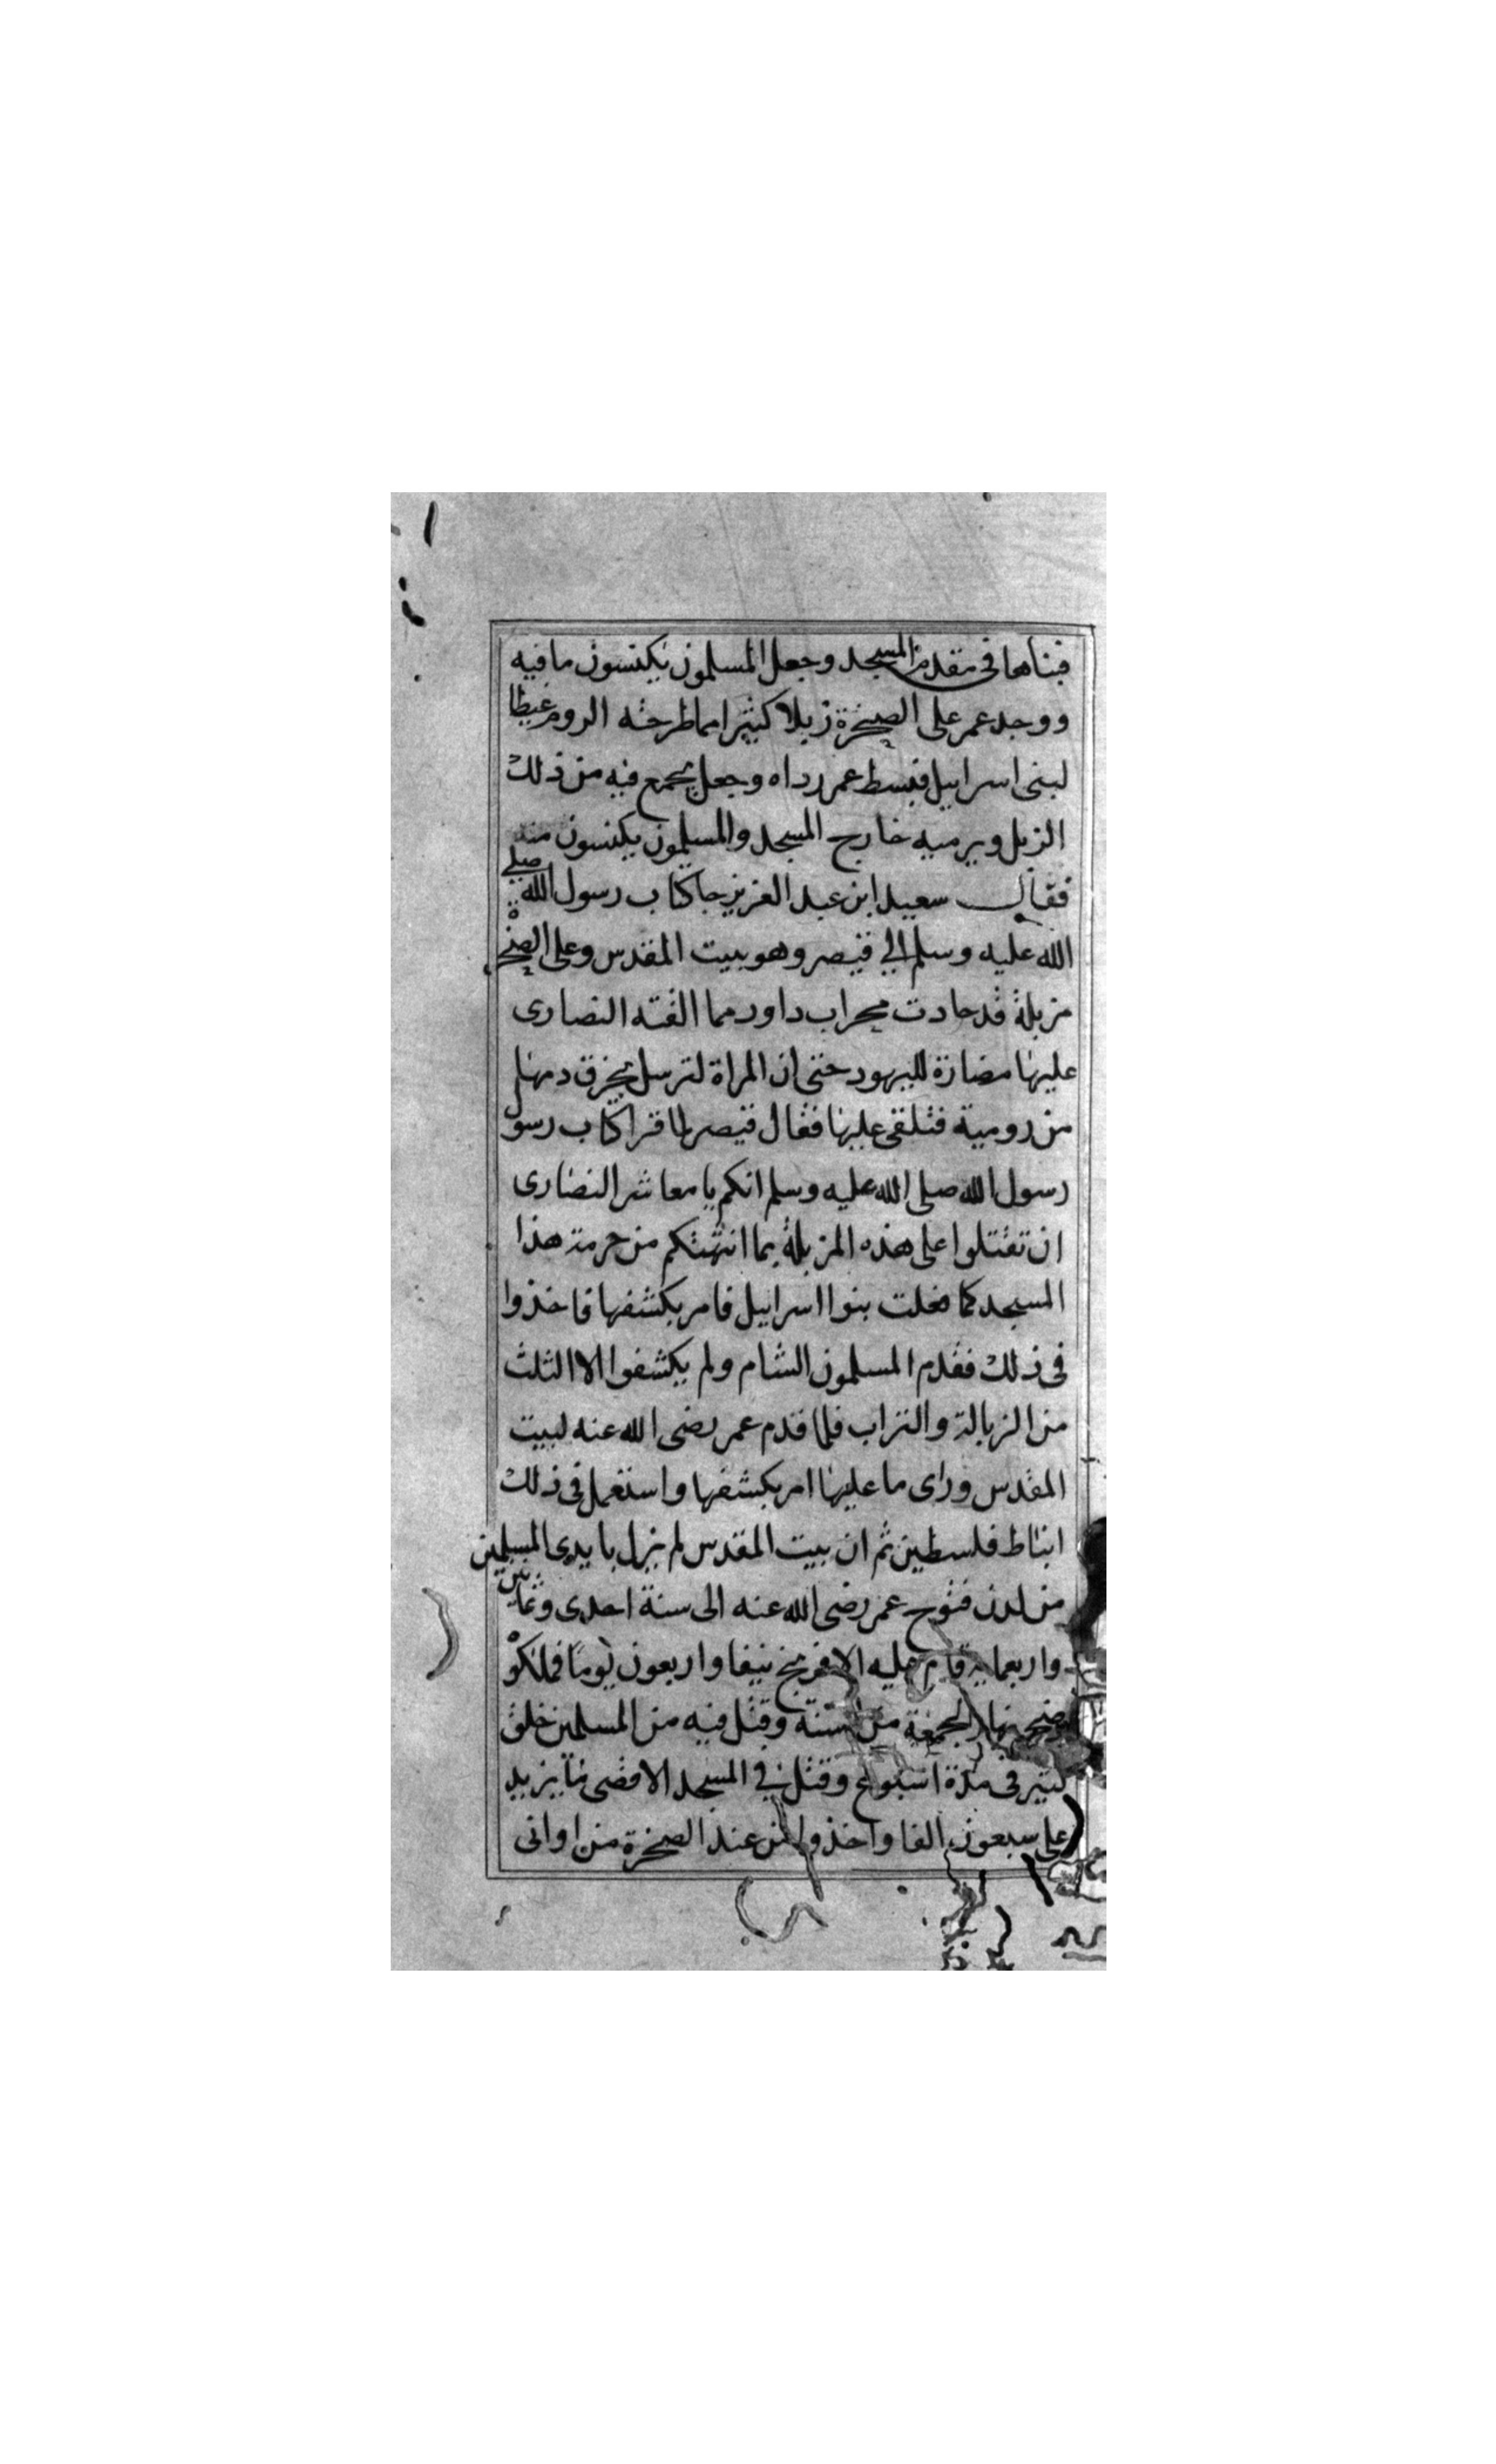 فبناها فى مقدم المسجد وجعل المسلمون يكنسون ما فيه
ووجد عمر على الصخرة زبلا كثيرا مما طرحته الروم غيظا
لبنى اسراييل فبسط عمر رداه وجعل يجمع فيه من ذلك
الزبل ويرميه خارج المسجد والمسلمون يكنسون منه
فقال سعيد ابن عبد العزيز جا كتاب رسول الله صلى
الله عليه وسلم الي قيصر وهو ببيت المقدس وعلى الصخرة
مزبلة قد حادت محراب داود مما القته النصارى
عليها مضارة لليهود حتى ان المراة لترسل بخرق دمها
من رومية فتلقى عليها فقال قيصر لما قرا كتاب رسول
رسول الله صلى الله عليه وسلم انكم يا معاشر النصارى
ان تقتلوا على هذه المزبلة بما انتهتكم من حرمة هذا
المسجد كما فعلت بنوا اسراييل فامر بكشفها فاخذوا
فى ذلك فقدم المسلمون الشام ولم يكشفوا الا الثلث
من الزبالة والتراب فلما قدم عمر رضى الله عنه لبيت
المقدس وراى ما عليها امر بكشفها واستعمل فى ذلك
انباط فلسطين ثم ان بيت المقدس لم يزل بايدى المسلمين
من لدن فتوح عمر رضى الله عنه الى سنة احدى وثمانين
واربعمايه قام عليه الافرنج نيفا واربعون يوما فملكوْ
ضحى نهار الجمعة من سنة وقتل فيه من المسلمين خلق
كثير فى مدة اسبوع وقتل في المسجد الاقصى ما يزيد
على سبعون الفا واخذوا من عند الصخرة من اوانى